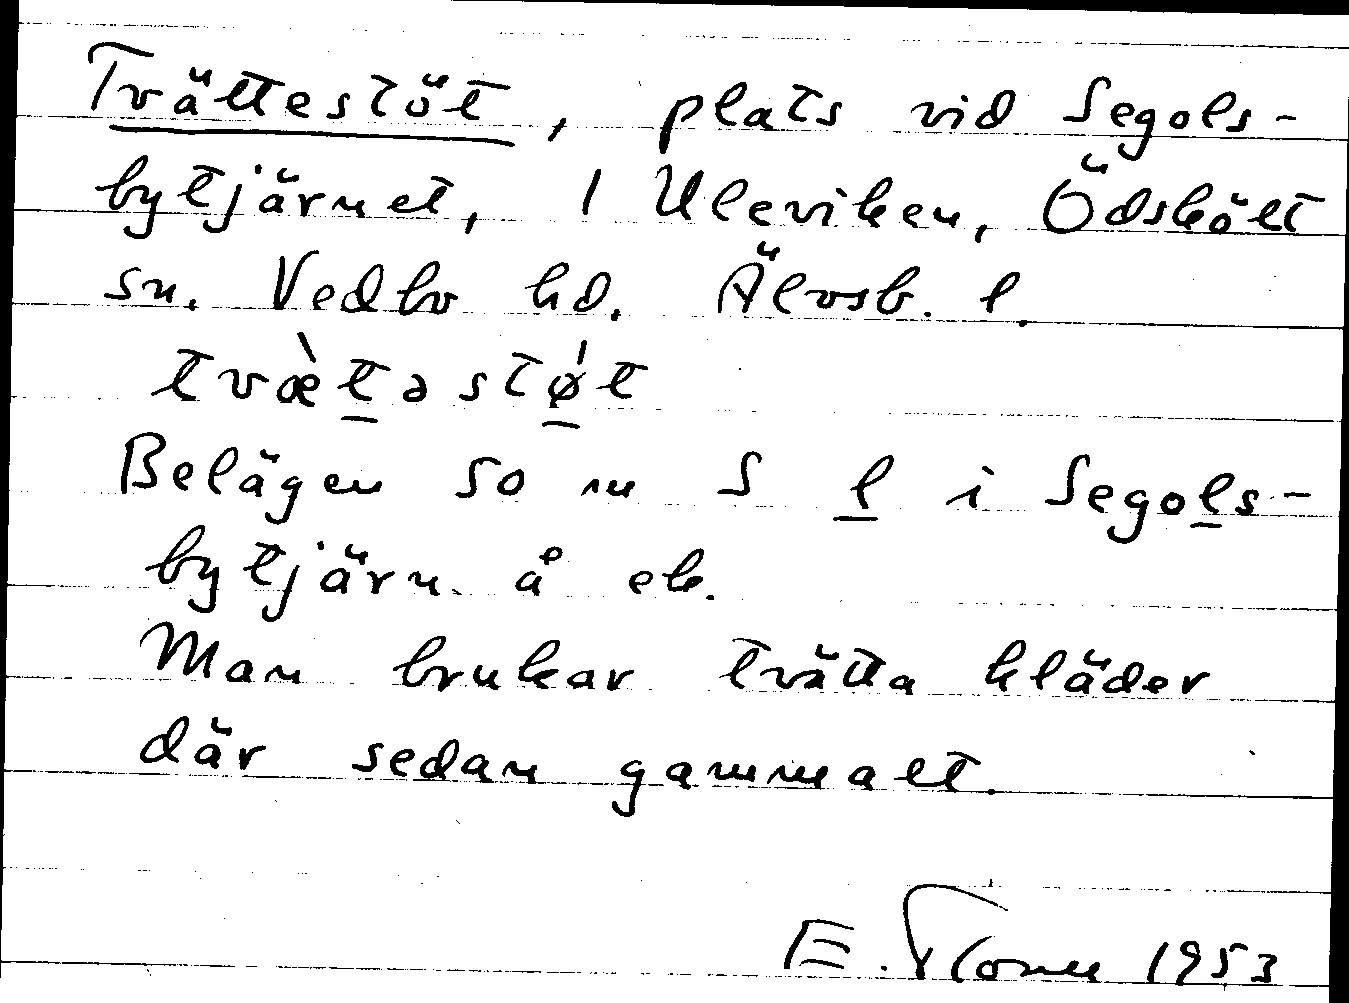 Tvättestöt, plats vid Segols-
bytjärnet, 1 Uleviken, Ödskölt
sn. Vedbo hd. Älvsb. l.
tvæ̀t̲əstǿ̲t
Belägen so m S l̲ i Segol̲s-
bytjärn. å ek.
Man brukar tvätta kläder
där sedan gammalt.
E. 1953